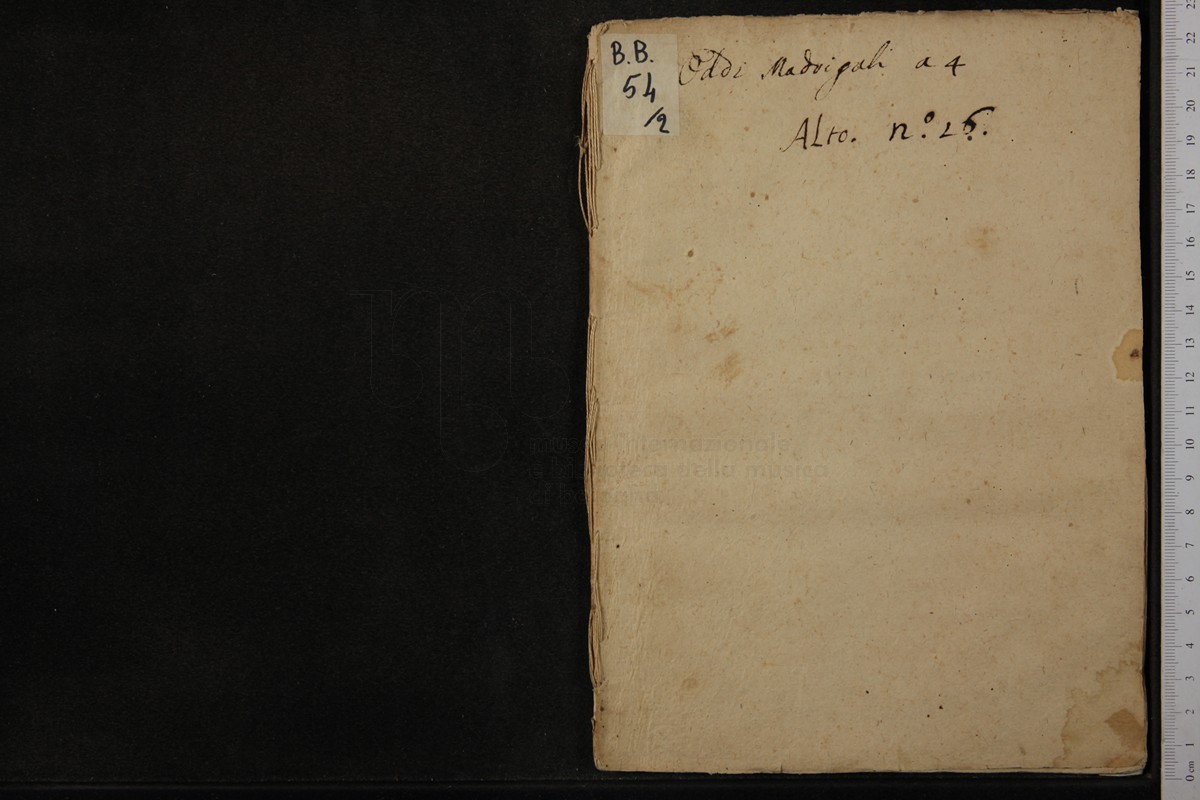 B.B.
54
/2
Oddi Madrigali a 4
Alto. nº. 26.
museo internazionale
e biblioteca della musica
di bologna
23
22
21
20
19
18
17
16
15
14
13
12
11
10
9
8
7
6
5
4
3
2
1
0 cm